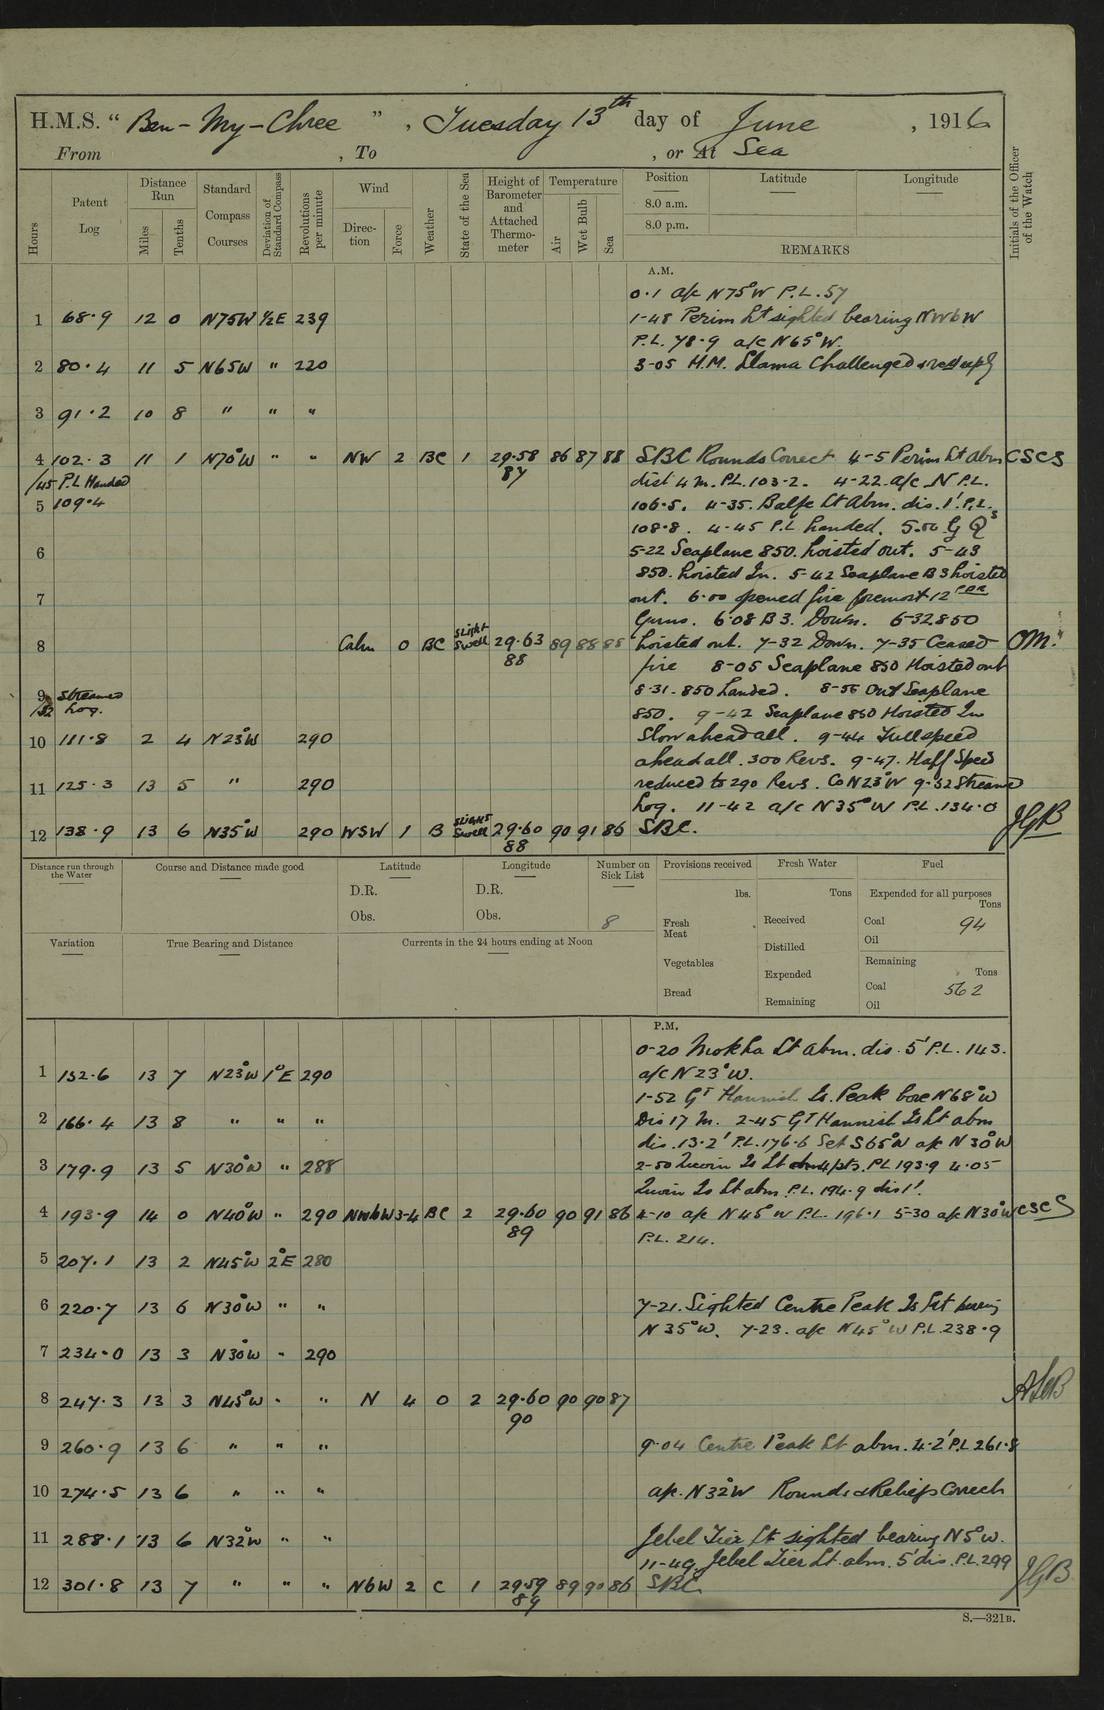 H.M.S. “ Ben-My-Chree ” , Tuesday 13th day of June , 1916
From , To , or At Sea
Hours
Patent Log
Distance Run
Miles
Tenths
Standard Compass Courses
Deviation of Standard Compass
Revolutions per minute
Wind
Direction
Force
Weather
State of the Sea
Height of Barometer and Attached Thermometer
Temperature
Air
Wet Bulb
Sea
Position Latitude Longitude
8.0 a.m.
8.0 p.m.
REMARKS
Initials of the Officer of the Watch
A.M.
0.1 a/c N75°W P.L. 57
1 68.9 12 0 N75W ½E 239 1-48 Perim Lt sighted bearing NWbW
P.L. 78.9 a/c N65°W.
2 80.4 11 5 N65W " 220 3-05 H.M. Llama Challenged & recd reply
3 91.2 10 8 " " "
4 102.3 11 1 N70°W " " NW 2 BC 1 29.58 86 87 88 SBC Rounds Correct 4-5 Perim Lt abm CSCS
87
/45 P.L Handed dist 4 m. P.L. 103-2. 4-22 a/c N P.L.
5 109.4 106.5. 4-35. Balfe Lt Abm. dis. 1' P.L.
108.8. 4-45 P.L handed. 5.00 G Qs
6 5-22 Seaplane 850. hoisted out. 5-43
850. hoisted In. 5-42 Seaplane B3 hoisted
7 out. 6.00 opened fire foremost 12 PDR
Guns. 6.08 B3. Down. 6-32 850
8 Calm 0 BC Slight Swell 29.63 89 88 88 hoisted out. 7-32 Down. 7-35 Ceased OM.
88
fire 8-05 Seaplane 850 Hoisted out
9 Streamed 8-31-850 landed. 8-56 Out Seaplane
/52 Log. 850. 9-42 Seaplane 850 Hoisted In
10 111.8 2 4 N23°W 290 Slow ahead all. 9-44 Full speed
ahead all. 300 Revs. 9-47. Half Speed
11 125.3 13 5 " 290 reduced to 290 Revs. Co N23°W 9-52 Streamed
Log. 11-42 a/c N35°W P.L. 134.0
12 138.9 13 6 N35°W 290 WSW 1 B Slight Swell 29.60 90 91 86 SBC. JGB
88
Distance run through the Water
Course and Distance made good
Latitude
D.R.
Obs.
Longitude
D.R.
Obs.
Number on Sick List
8
Provisions received
lbs.
Fresh Meat
Vegetables
Bread
Fresh Water
Tons
Received
Distilled
Expended
Remaining
Fuel
Expended for all purposes
Tons
Coal 94
Oil
Remaining
Tons
Coal 562
Oil
Variation
True Bearing and Distance
Currents in the 24 hours ending at Noon
P.M.
0-20 Mokha Lt abm. dis. 5' P.L. 143.
1 152.6 13 7 N23°W 1°E 290 a/c N23°W.
1-52 Gt Hannish Is. Peak bore N68°W
2 166.4 13 8 " " " Dis 17 m. 2-45 Gt Hannish Is Lt abm
dis. 13.2' P.L. 176.6 Set S65°W a/c N30°W
3 179.9 13 5 N30°W " 288 2-50 Quoin Is Lt abm 4pts. P.L 193.9 4.05
Quoin Is Lt abm P.L. 194.9 dis 1'.
4 193.9 14 0 N40°W " 290 NWbW 3-4 BC 2 29.60 90 91 86 4-10 a/c N45°W P.L. 196.1 5-30 a/c N30°W CSCS
89
P.L. 214.
5 207.1 13 2 N45°W 2°E 280
6 220.7 13 6 N30°W " " 7-21. Sighted Centre Peak Is Lt bearing
N35°W. 7-23. a/c N45°W P.L. 238.9
7 234.0 13 3 N30°W " 290
8 247.3 13 3 N45°W " " N 4 0 2 29.60 90 90 87
90
9 260.9 13 6 " " " 9-04 Centre Peak Lt abm. 4.2' P.L 261.8
10 274.5 13 6 " " " a/c. N32°W Rounds & Reliefs Correct
11 288.1 13 6 N32°W " " Jebel Tier Lt sighted bearing N5°W.
11-49. Jebel Tier Lt abm. 5' dis. P.L. 299
12 301.8 13 7 " " " NbW 2 C 1 29.59 89 90 86 SBC JGB
89
S.—321B.